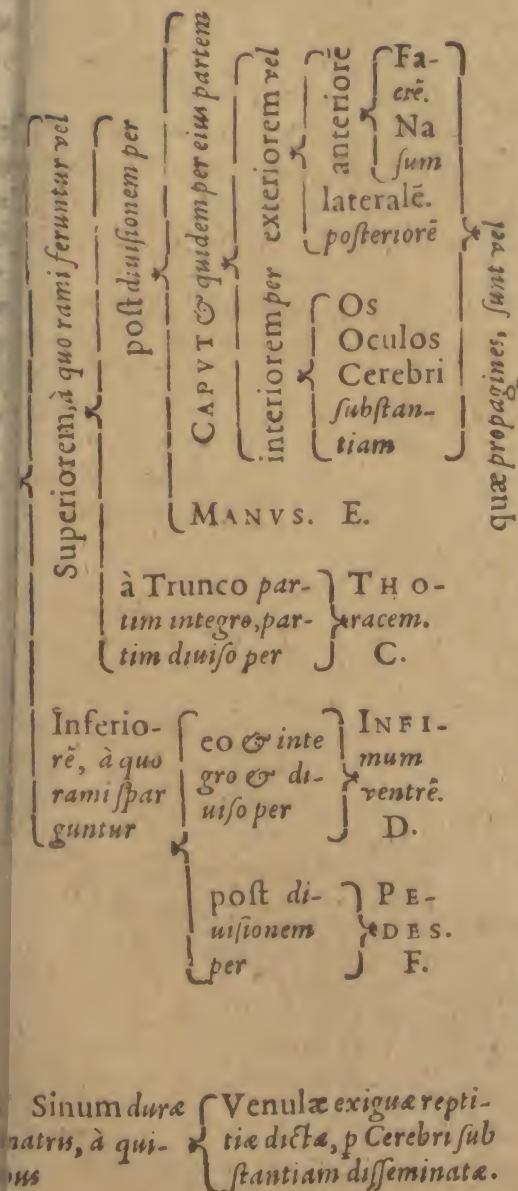 Superiorem, à quo rami feruntur vel
post diuisionem per
CAPVT & quidem per eius partem
exteriorem vel
anteriorē
Fa-
ciē.
Na
sum
lateralē.
posteriorē
interiorem per
Os
Oculos
Cerebri
substan-
tiam
quæ propagines, sunt vel
MANVS. E.
à Trunco par-
tim integro, par-
tim diuiso per
THO-
racem.
C.
Inferio-
rē, à quo
rami spar
guntur
eo & inte
gro & di-
uiso per
INFI-
mum
ventrē.
D.
post di-
uisionem
per
PE-
DES.
F.
Sinum duræ
matris, à qui-
bus
Venulæ exiguæ repti-
tiæ dictæ, p Cerebri sub
stantiam disseminatæ.